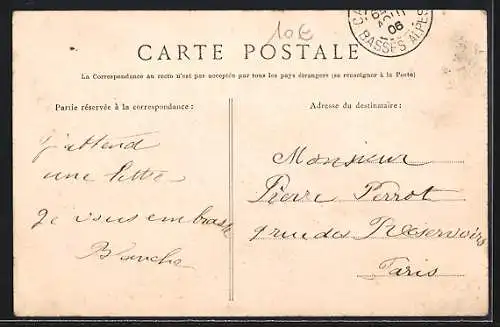 10€
AOUT
06
BASSES ALPES
CARTE POSTALE
La Correspondance au recto n'est pas acceptée par tous les pays étrangers (se renseigner à la Poste)
Partie réservée à la correspondance:
Adresse du destinataire:
J'attend
une lettre
Je vous embrasse
Blanche
Monsieur
Pierre Perrot
9 rue des Réservoirs
Paris